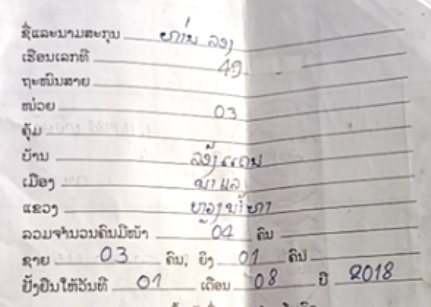 ຊື່ແລະນາມສະກຸນ ທ່ານ ລອງ
ເຮືອນເລກທີ 49
ຖະໜົນສາຍ
ໜ່ວຍ 03
ຄຸ້ມ
ບ້ານ
ເມືອງ ນາແລ
ແຂວງ ຫຼວງນ້ຳທາ
ລວມຈຳນວນຄົນມີໜ້າ 04 ຄົນ
ຊາຍ 03 ຄົນ, ຍິງ 01 ຄົນ
ຢັ້ງຢືນໃຫ້ວັນທີ 01 ເດືອນ 08 ປີ 2018